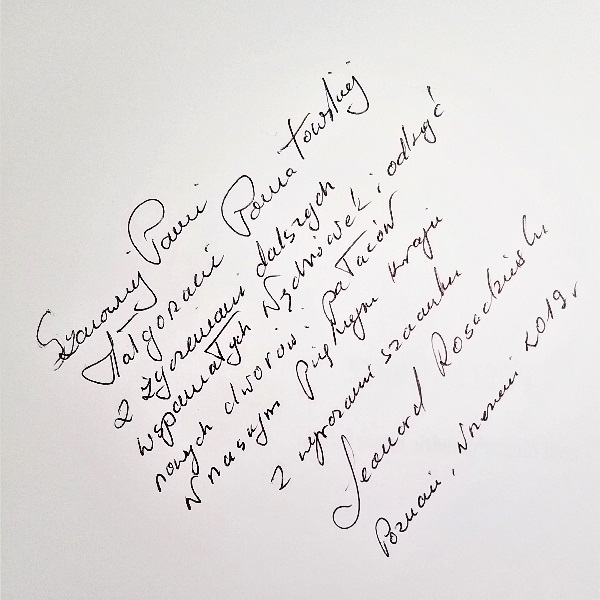 Szanownej Pani
Małgorzacie Pomatowskiej
z życzeniami dalszych
wspaniałych wędrówek i odkryć
nowych dworów i pałaców
w naszym pięknym kraju
z wyrazami szacunku
Leonard Rosadziński
Poznań, wrzesień 2019 r